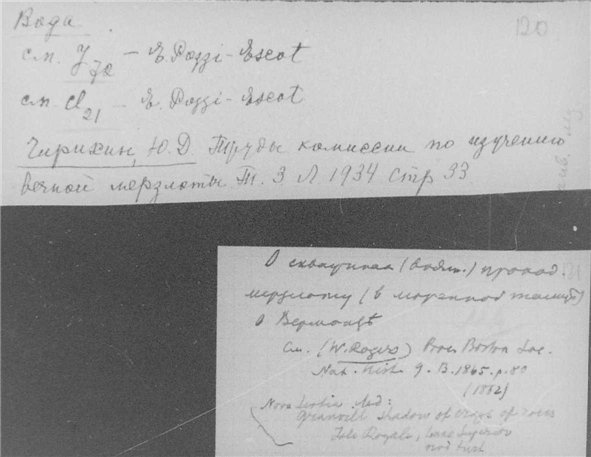 Вода
120
см. J70 — E. Pozzi-Escot
см. Cl21 — E. Pozzi-Escot
Чирихин, Ю. Д Труды комиссии по изучению
вечной мерзлоты Т. 3 Л 1934 стр 33
О скважинах (водян.) проход.
мерзлоту (в моренной толще)
О Вермонт
См. (W. Rogers) Proc. Boston Soc.
Nat. Hist. 9. B. 1865. p. 80
(1882)
Nova Scotia
Granville shadow of crags of
Isle Royale, Lake Superior